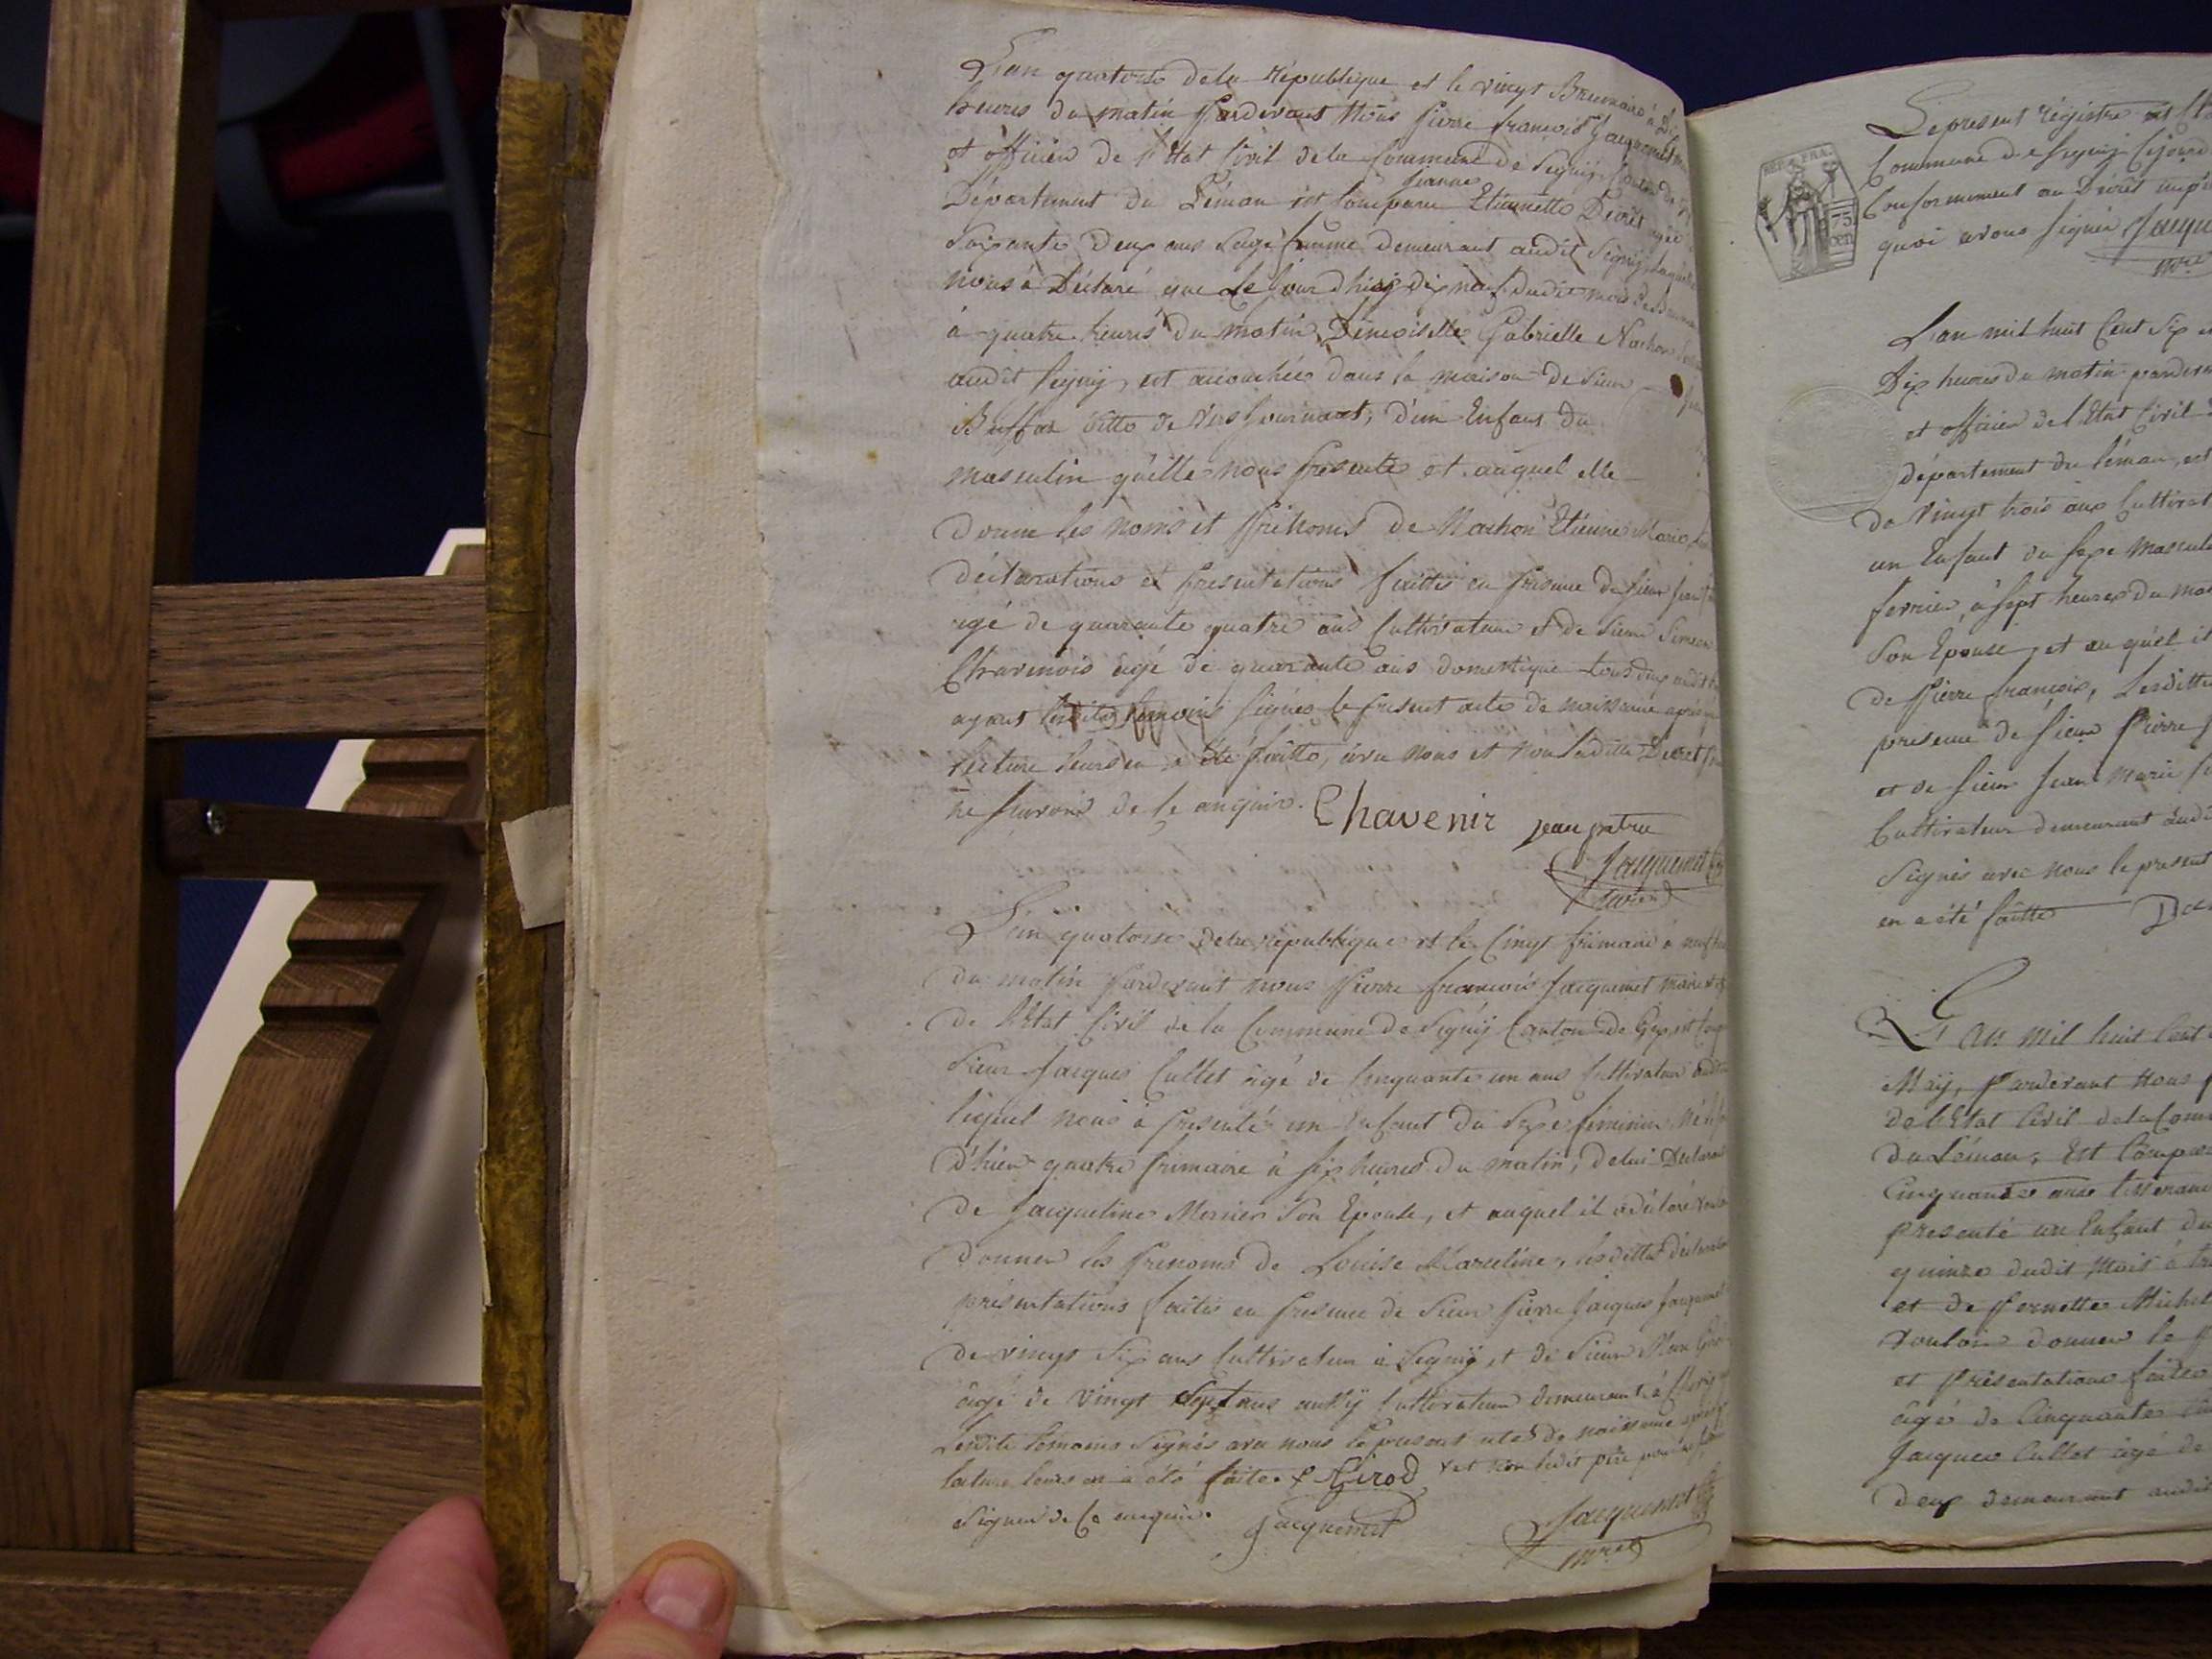 L'an quatorse de la République et le vingt Brumaire à
heures du matin Pardevant Nous Pierre françois Jacquemet
et officier de l'Etat Civil de la Commune de Segnÿ, Canton de
Jeanne
Département du Léman est Comparu Etiennette Decret agée
Soixante Deux ans Sage femme demeurant audit Segnÿ, Laquelle
nous à Déclaré que Le Jour d'hiez dix neuf dudit mois de
à quatre heures du matin, Démoiselle Gabrielle Nachon
audit Segnÿ, est accouchée dans la maison de Sieur
Buffaz ditte de Vers d'un Enfant du
masculin qu'elle nous presente et auquel elle
donne les noms et Prénoms de Nachon Etienne Marie
déclarations et presentations faittes en presence de Sieur Jean
agé de quarante quatre ans Cultivateur et de Sieur Simeon
agé de quarante ans domestique tous deux audit
ayant lesdits temoins signés le present acte de naissance après
lecture leurs en a été faitte, avec nous et non laditte Decret
ne savoir de le enquire. Chavenir jean patru
Jacquemet
maire
L'an quatorse de la république et le Cinqt frimaire à neuf
du matin Pardevant nous Pierre françois Jacquemet maire et
de l'Etat Civil de la Commune de Segnÿ Canton de Gex, est
Sieur Jacques Cullet agé de Cinquante un ans Cultivateur audit
lequel nous à presenté un Enfant du Sexe féminin, Né le
d'hier quatre frimaire à six heures du matin, de lui Déclarant
de Jacqueline Mercier Son Epouse, et auquel il a déclaré
donner les Prenoms de Louise Marceline, lesdittes déclarations
présentations faites en presence de Sieur Pierre Jacques Jacquemet
de vingt Six ans Cultivateur à Segnÿ et de Sieur Marc
âgé de vingt Sept ans aussÿ Cultivateur demeurant à
Lesdits temoins Signés avec nous le present acte de naissance après
lecture leurs en a été faite. & Girod & et non ledit père pour
signer de Ce enquire. Jacquemet Jacquemet
maire
Le present régistre est
REP. FRA.
75
cen
Commune de Segnÿ Cejourd
Conformement au Décret impé
quoi avons signé Jacqu
mre
L'an mil huit Cent Six
Dix heures du matin pardevan
et officier de l'Etat Civil
département du Léman, est
de vingt trois ans Cultivat
un Enfant du Sexe Mascul
fevrier, à sept heures du ma
Son Epouse, et au quel il
de Pierre françois, Lesditte
presence de Sieur Pierre
et de Sieur Jean Marie
Cultivateur demeurant audi
Signés avec nous le present
en a été faitte
L'an mil huit Cent
Maÿ, Pardevant Nous
de l'Etat Civil de la Com
du Léman, Est Compar
Cinquante ans tisseran
presenté un Enfant du
quinze dudit Mois à
et de Pernette Michel
vouloir donner le
et Présentations faites
âgé de Cinquante
Jacques Cullet agé de
deux demeurant audit